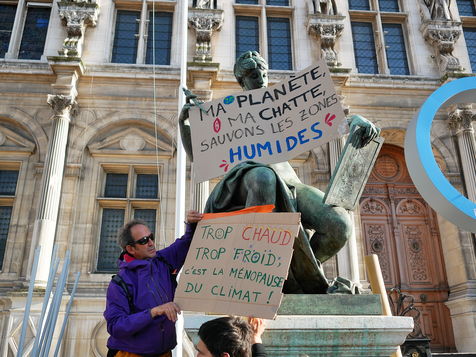 MA PLANÈTE,
MA CHATTE,
SAUVONS LES ZONES
HUMIDES
TROP CHAUD
TROP FROID ;
C'EST LA MÉNOPAUSE
DU CLIMAT !